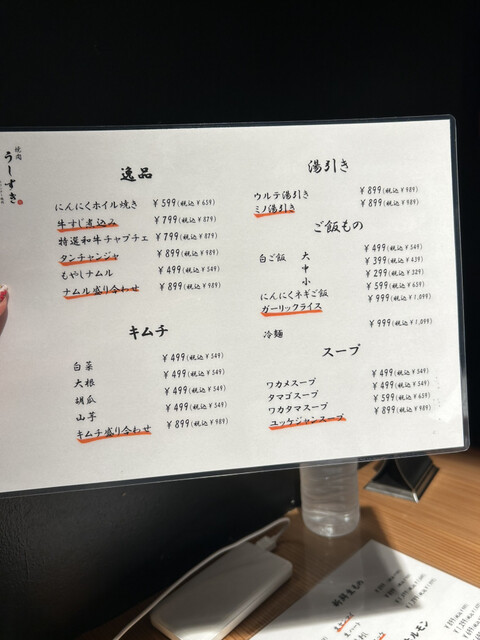 焼肉
うしすき
逸品
にんにくホイル焼き ¥599(税込¥659)
牛すじ煮込み ¥799(税込¥879)
特選和牛チャプチェ ¥799(税込¥879)
タンチャンジャ ¥899(税込¥989)
もやしナムル ¥499(税込¥549)
ナムル盛り合わせ ¥899(税込¥989)
キムチ
白菜 ¥499(税込¥549)
大根 ¥499(税込¥549)
胡瓜 ¥499(税込¥549)
山芋 ¥499(税込¥549)
キムチ盛り合わせ ¥899(税込¥989)
湯引き
ウルテ湯引き ¥899(税込¥989)
ミノ湯引き ¥899(税込¥989)
ご飯もの
白ご飯 大 ¥499(税込¥549)
中 ¥399(税込¥439)
小 ¥299(税込¥329)
にんにくネギご飯 ¥599(税込¥659)
ガーリックライス ¥999(税込¥1,099)
冷麺 ¥999(税込¥1,099)
スープ
ワカメスープ ¥499(税込¥549)
タマゴスープ ¥499(税込¥549)
ワカタマスープ ¥599(税込¥659)
ユッケジャンスープ ¥899(税込¥989)